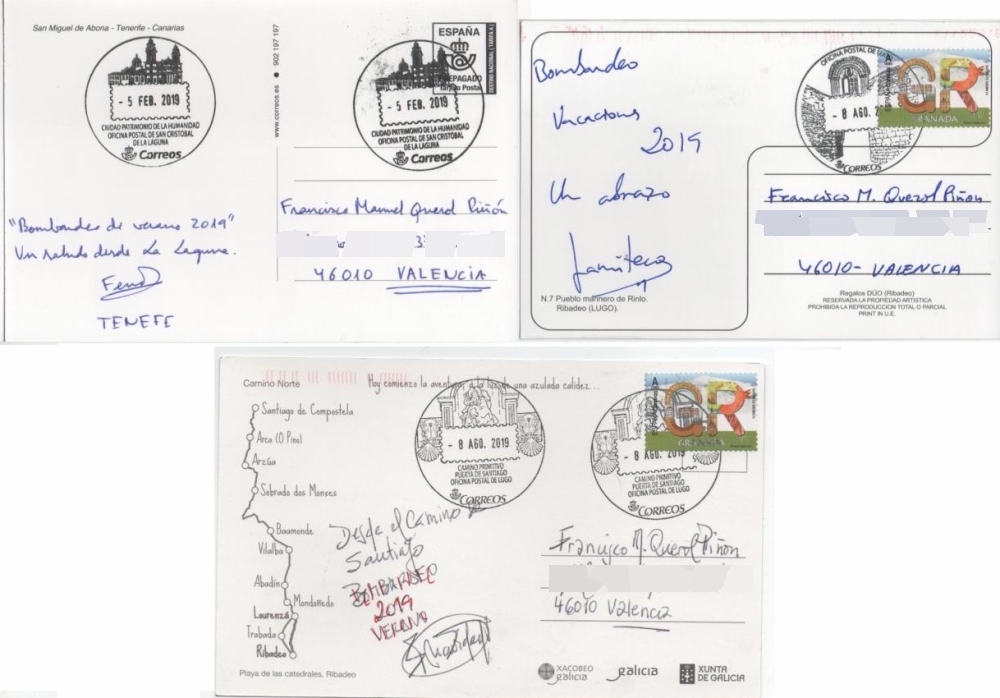 San Miguel de Abona - Tenerife - Canarias
- 5 FEB. 2019
CIUDAD PATRIMONIO DE LA HUMANIDAD
OFICINA POSTAL DE SAN CRISTOBAL
DE LA LAGUNA
Correos
www.correos.es ● 902 197 197
ESPAÑA
- 5 FEB. 2019
CIUDAD PATRIMONIO DE LA HUMANIDAD
OFICINA POSTAL DE SAN CRISTOBAL
DE LA LAGUNA
Correos
"Bombardeo de verano 2019"
Un saludo desde La Laguna.
TENEFE
Francisco Manuel Querol Piñón
46010 VALENCIA
Bombardeo
Vacaciones
2019
Un abrazo
N.7 Pueblo marinero de Rinlo.
Ribadeo (LUGO).
OFICINA POSTAL DE
- 8 AGO. 2
CORREOS
A
GR
GRANADA
Francisco M. Querol Piñón
46010- VALENCIA
Regalos DÚO (Ribadeo)
RESERVADA LA PROPIEDAD ARTISTICA
PROHIBIDA LA REPRODUCCION TOTAL O PARCIAL
PRINT IN U.E.
Camino Norte
Hoy comienzo la aventura, a la luz de una azulada calidez...
Santiago de Compostela
Arca (O Pino)
Arzúa
Sobrado dos Monxes
Baamonde
Vilalba
Abadín
Mondoñedo
Lourenzá
Trabada
Ribadeo
Playa de las catedrales, Ribadeo
- 8 AGO. 2019
CAMINO PRIMITIVO
PUERTA DE SANTIAGO
OFICINA POSTAL DE LUGO
CORREOS
- 8 AGO. 2019
CAMINO PRIMITIVO
PUERTA DE SANTIAGO
OFICINA POSTAL DE LUGO
CORREOS
A
GR
GRANADA
Desde el Camino
Santiago
BOMBARDEO
2019
VERANO
Francisco M. Querol Piñón
46010 Valencia
XACOBEO
galicia
galicia
XUNTA
DE GALICIA